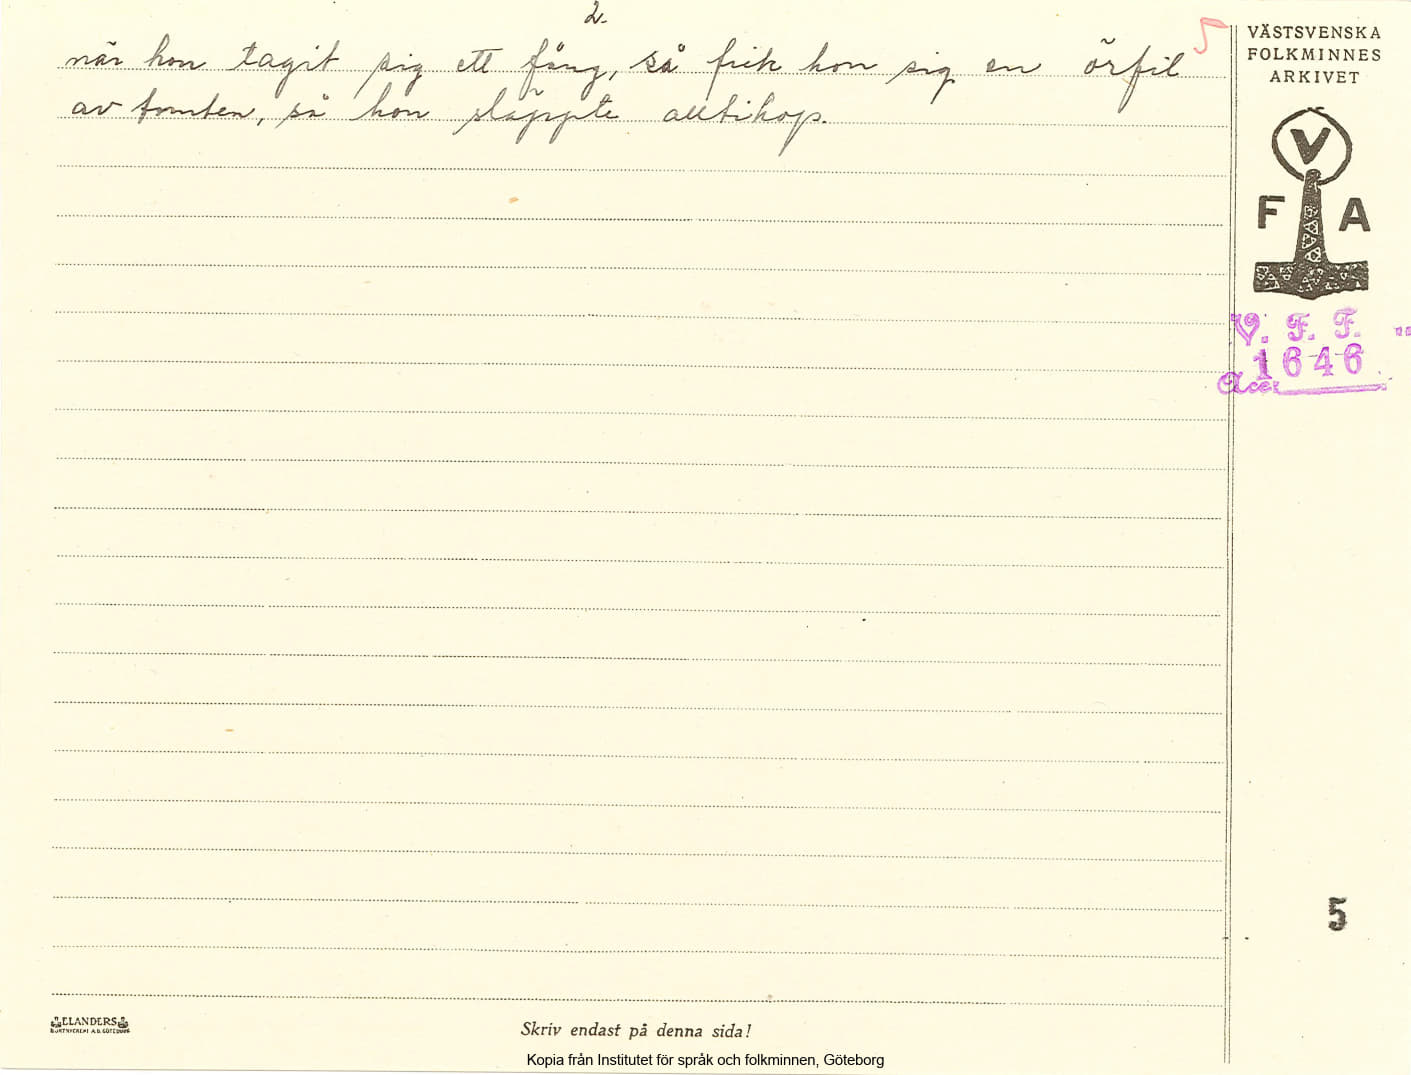 2.
5
när hon tagit sig ett fång, så fick hon sig en örfil
av tomten, så hon släppte alltihop.
VÄSTSVENSKA
FOLKMINNES
ARKIVET
V
F A
V. F. F.
Acc. 1646
5
ELANDERS
BOKTRYCKERI A.B. GÖTEBORG
Skriv endast på denna sida!
Kopia från Institutet för språk och folkminnen, Göteborg